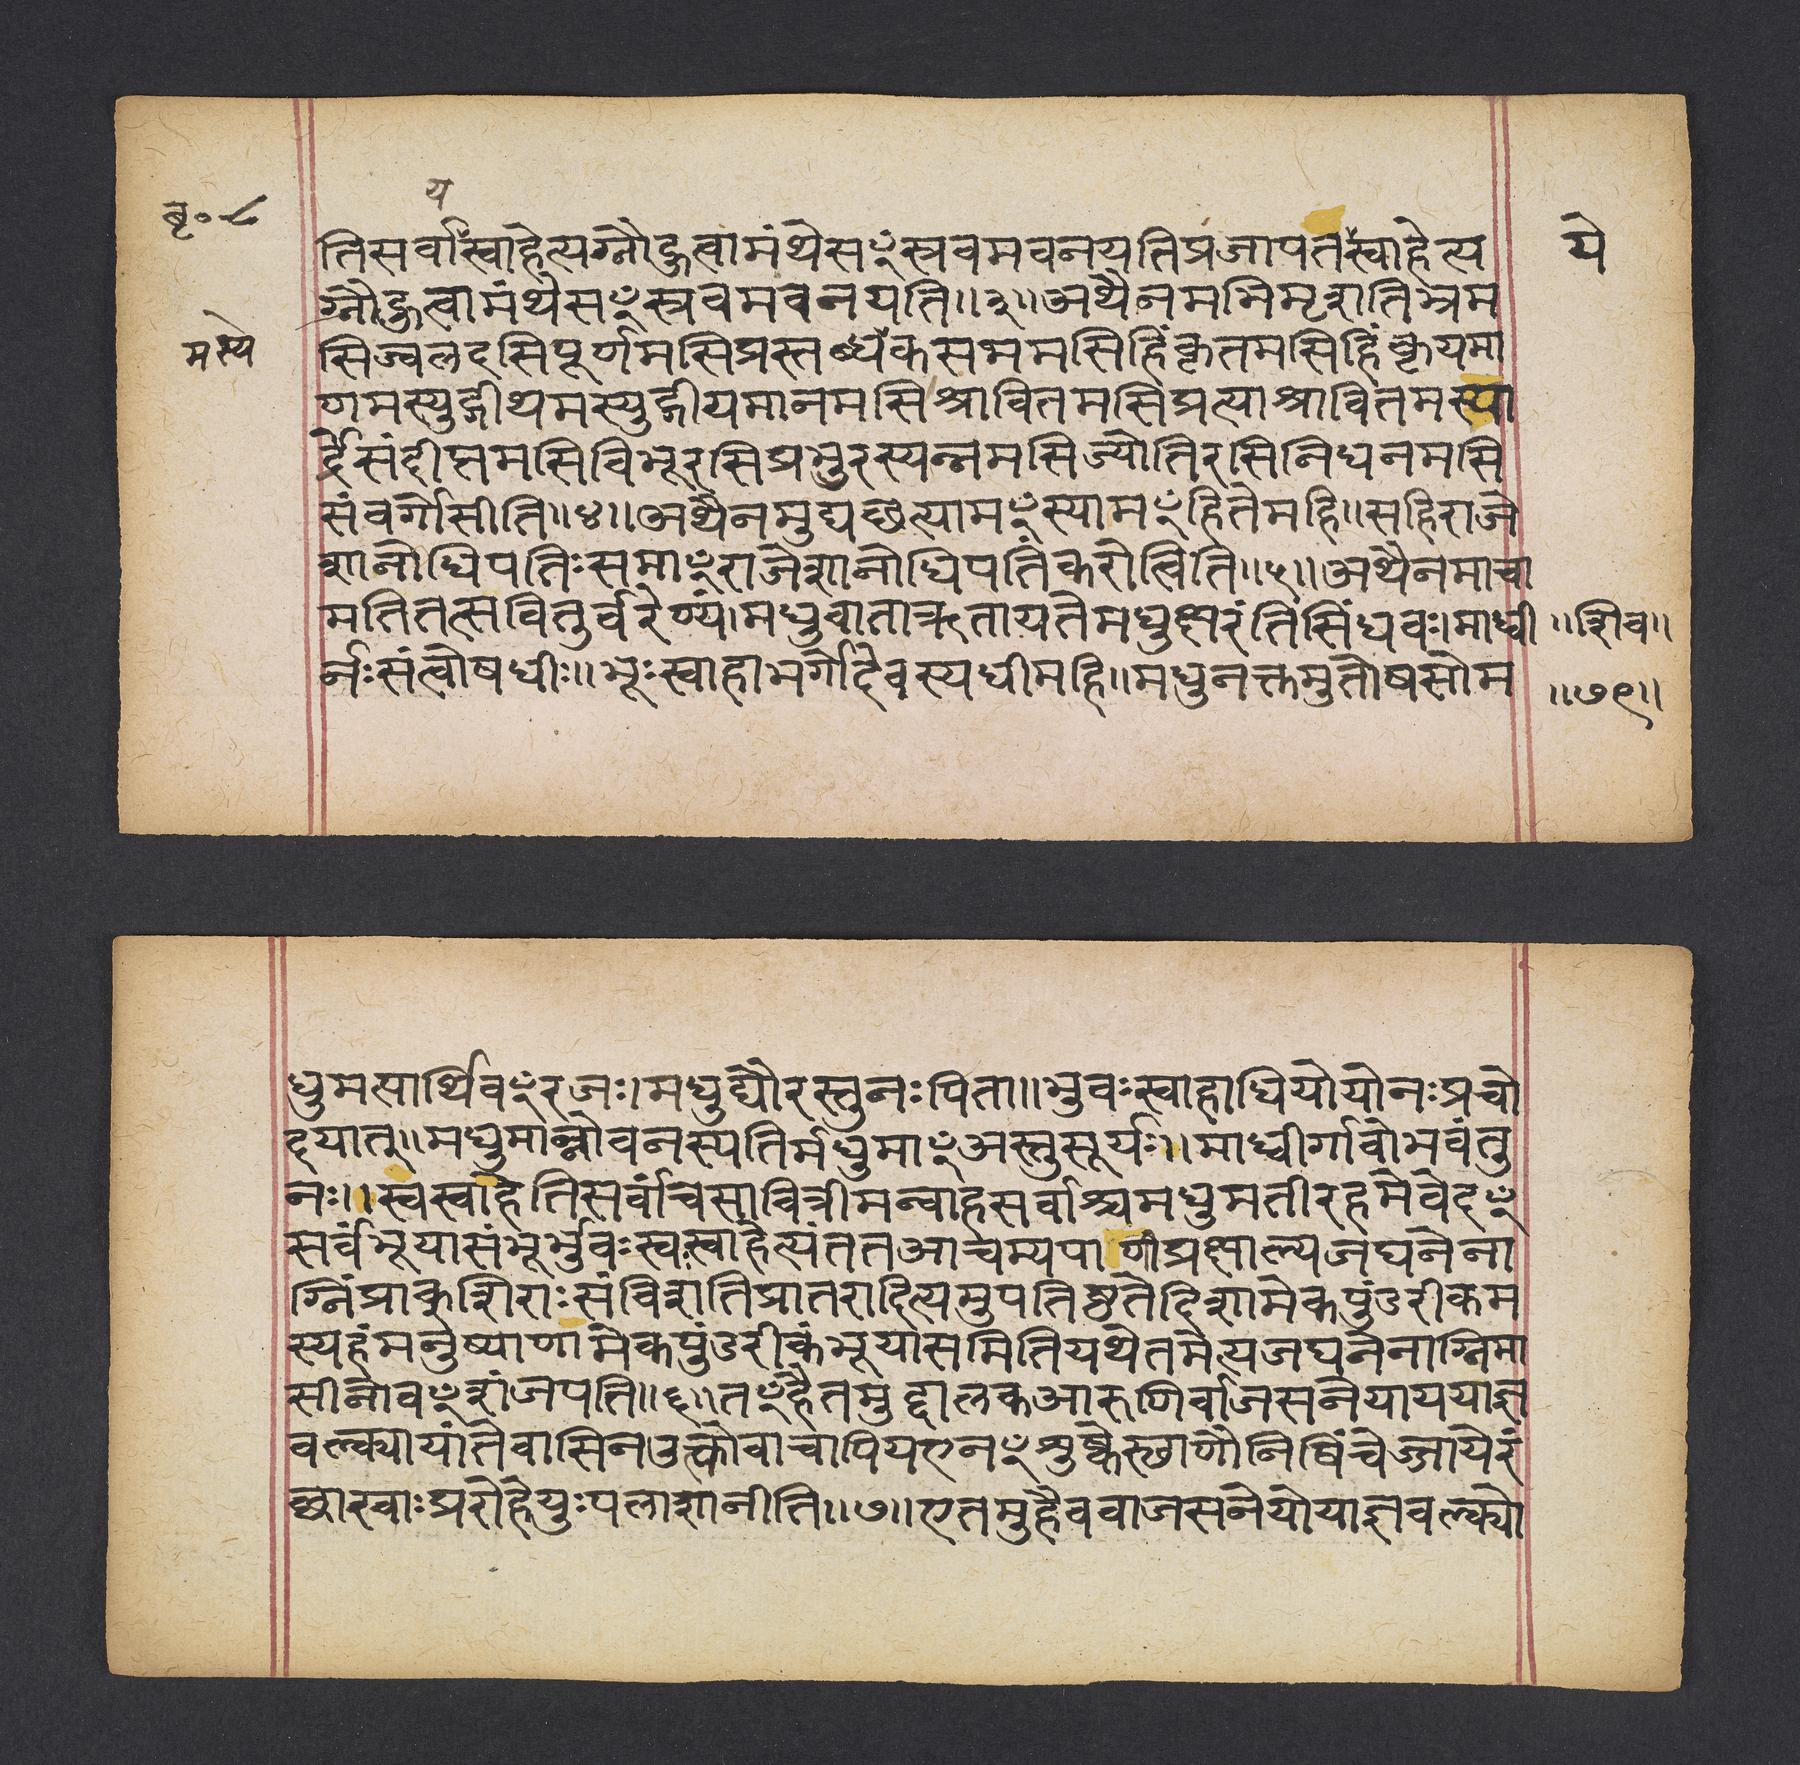 बृ॰८
य
तिसर्वास्वाहेत्यग्नौहुत्वामंथेसꣳस्रवमवनयतिप्रजापतस्वाहेत्य
ये
ग्नौहुत्वामंथेसꣳस्रवमवनयति॥३॥अथैनमभिमृशतिभ्रम
मस्ये
सिज्वलदसिपूर्णमसिप्रस्तब्धंकसभमसिहिंकृतमसिहिंकृयमा
णमस्युद्गीथमस्युद्गीयमानमसिश्रावितमसिप्रत्याश्रावितमस्या
र्द्रेसंदीप्तमसिविभूरसिप्रभुरस्यन्नमसिज्योतिरसिनिधनमसि
संवर्गोसीति॥४॥अथैनमुद्यछत्यामꣳस्यामꣳहितेमहि॥सहिराजे
शानोधिपतिःसमाꣳराजेशानोधिपतिंकरोत्विति॥५॥अथैनमाचा
मतितत्सवितुर्वरेण्यं।मधुवाताऋतायतेमधुक्षरंतिसिंधवः।माध्वी
॥शिव॥
र्नःसंत्वोषधीः॥भूःस्वाहाभर्गोदेवस्यधीमहि॥मधुनक्तमुतोषसोम
॥७९॥
धुमत्पार्थिवꣳरजः।मधुद्यौरस्तुनःपिता॥भुवःस्वाहाधियोयोनःप्रचो
दयात्॥मधुमान्नोवनस्पतिर्मधुमाꣳअस्तुसूर्यः॥माध्वीर्गावोभवंतु
नः॥स्वस्वाहेतिसर्वांचसावित्रीमन्वाहसर्वाश्चमधुमतीरहमेवेदꣳ
सर्वंभूयासंभूर्भुवःस्वःस्वाहेत्यंततआचम्यपाणीप्रक्षाल्यजघनेना
ग्निंप्राक्शिराःसंविशतिप्रातरादित्यमुपतिष्ठतेदिशामेकपुंडरीकम
स्यहंमनुष्याणामेकपुंडरीकंभूयासमितियथेतमेत्यजघनेनाग्निमा
सीनोवꣳशंजपति॥६॥तꣳहैतमुद्दालकआरुणिर्वाजसनेयाययाज्ञ
वल्क्यायांतेवासिनउत्क्वोवाचापियएनꣳशुष्केस्थाणौनिषिंचेज्जायेरं
छाखाःप्ररोहेयुःपलाशानीति॥७॥एतमुहैववाजसनेयोयाज्ञवल्क्यो